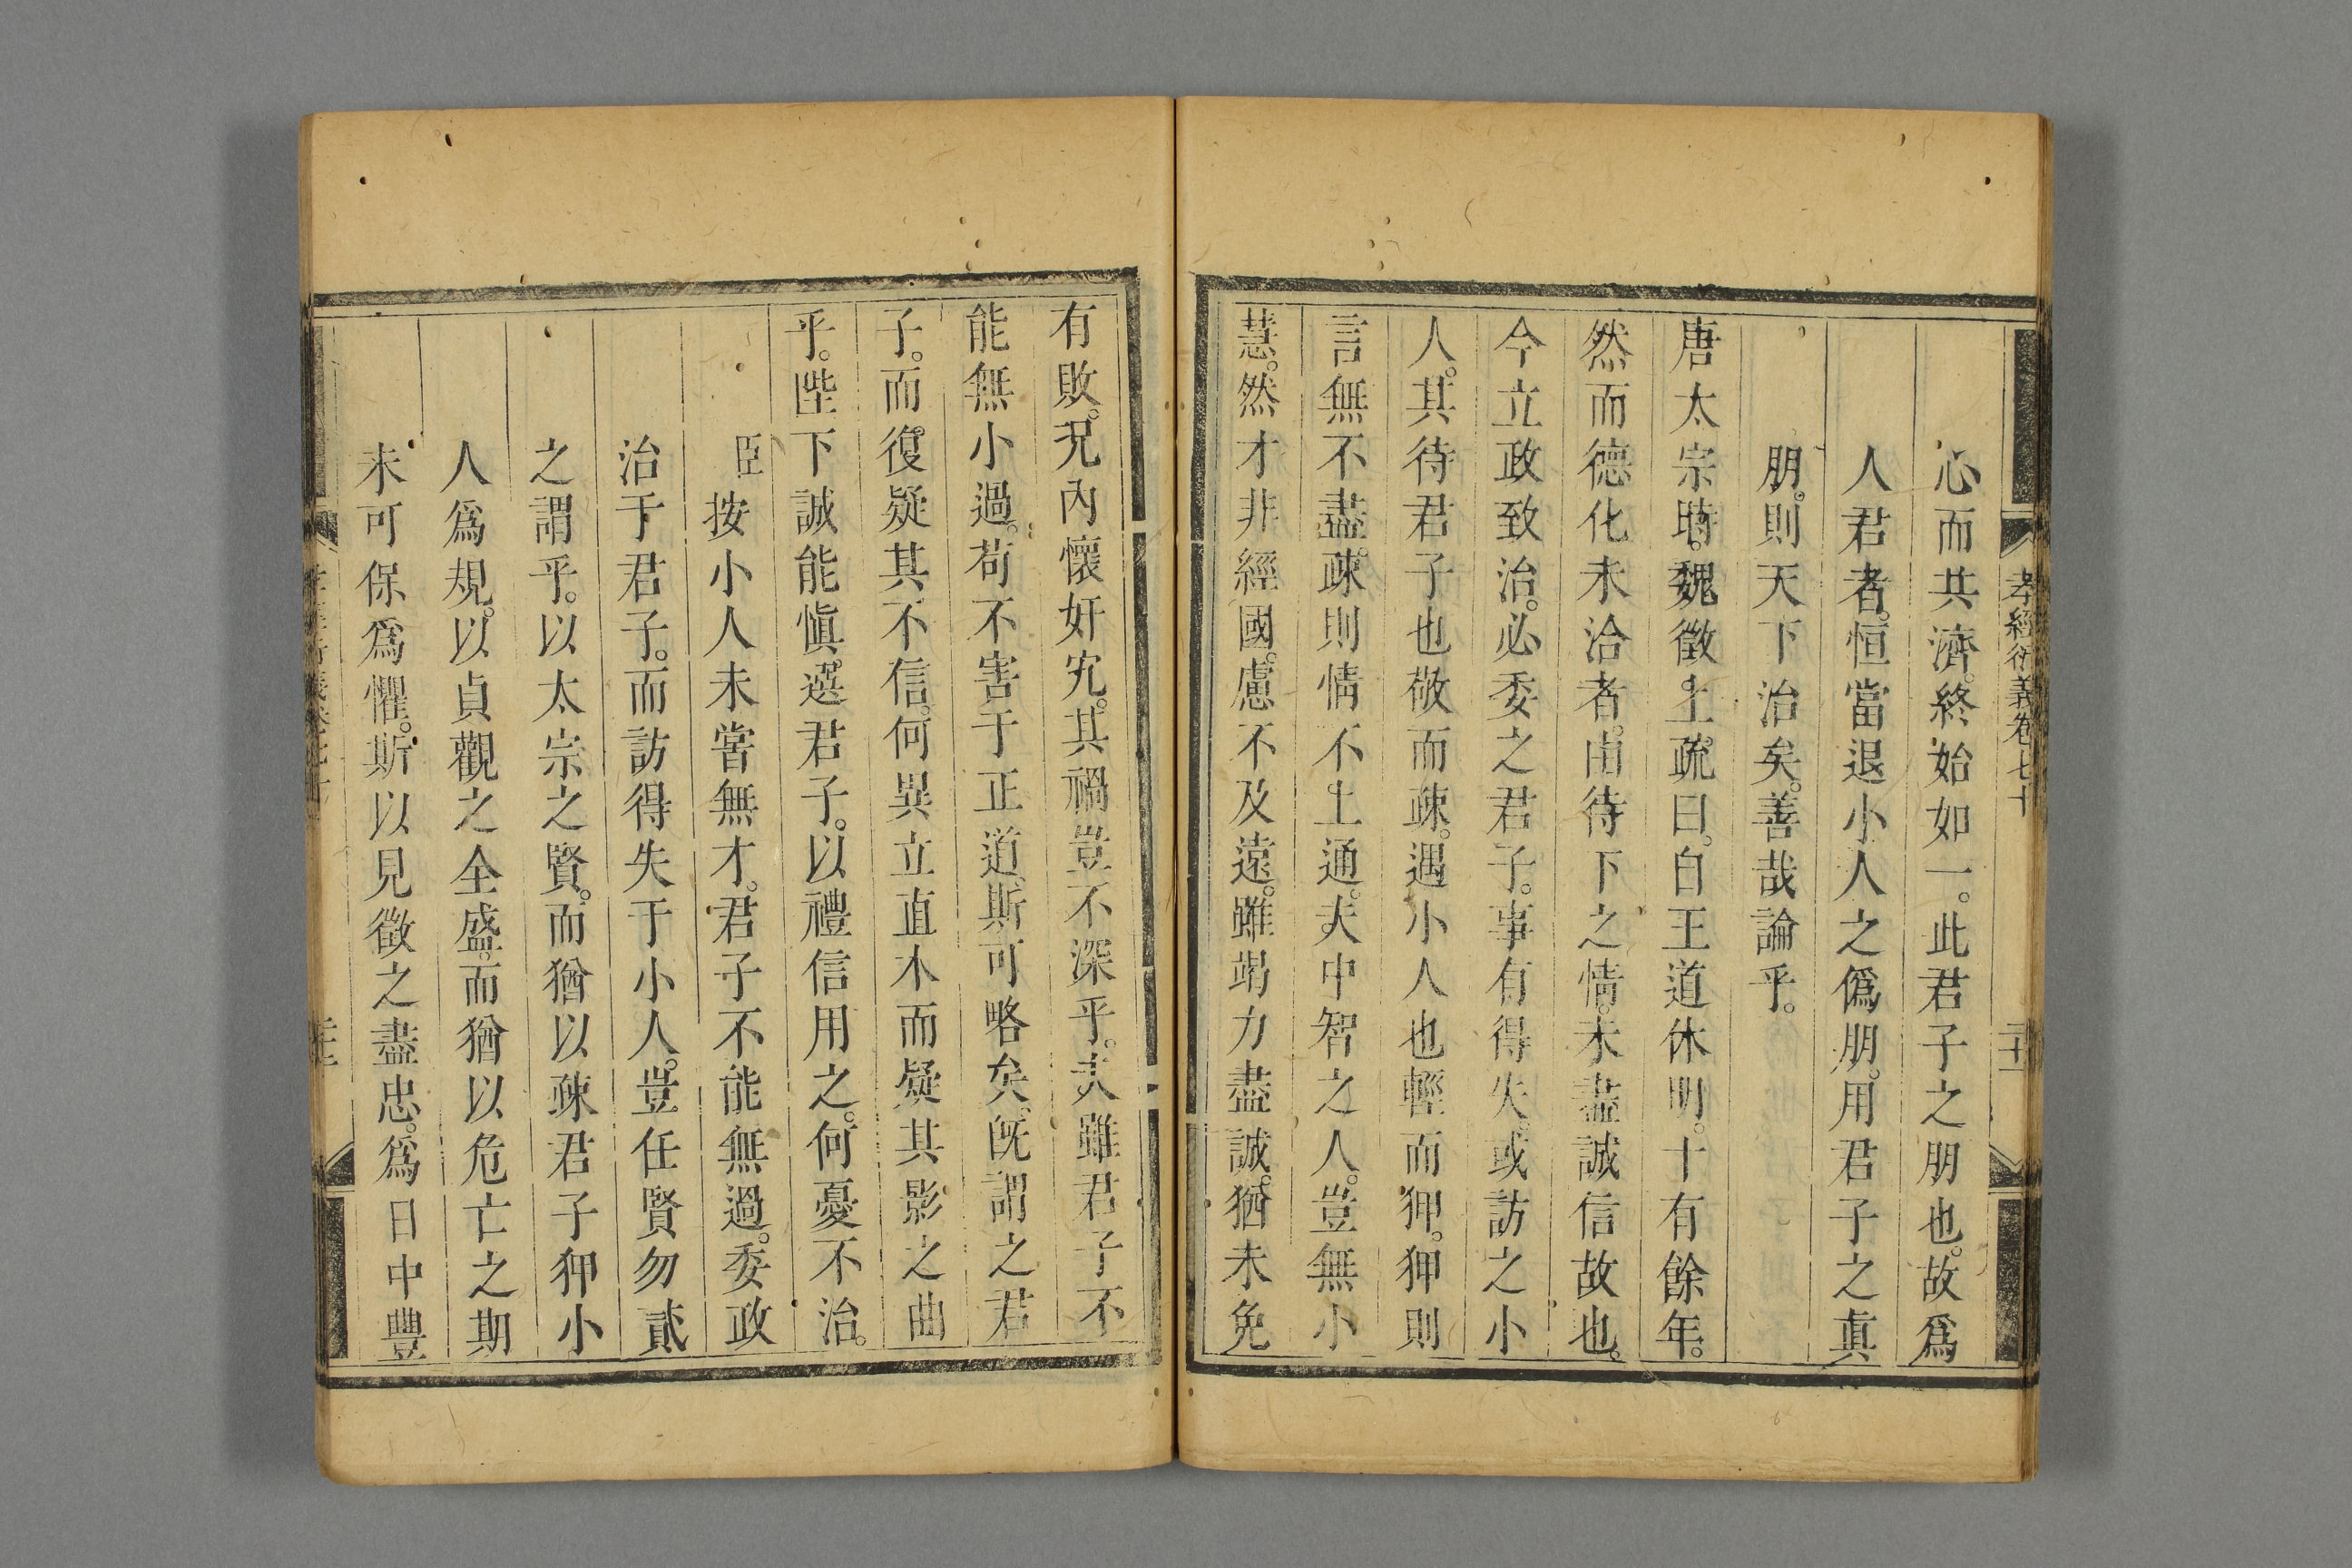 孝經衍義卷七十
心而共濟。終始如一。此君子之朋也。故爲
人君者。恒當退小人之僞朋。用君子之眞
朋。則天下治矣。善哉論乎。
唐太宗時。魏徵上疏曰。自王道休明。十有餘年。
然而德化未洽者。由待下之情。未盡誠信故也。
今立政致治。必委之君子。事有得失。或訪之小
人。其待君子也敬而疎。遇小人也輕而狎。狎則
言無不盡。疎則情不上通。夫中智之人。豈無小
慧。然才非經國。慮不及遠。雖竭力盡誠。猶未免
有敗。況內懷奸宄。其禍豈不深乎。夫雖君子不
能無小過。苟不害于正道。斯可略矣。旣謂之君
子。而復疑其不信。何異立直木而疑其影之曲
乎。陛下誠能愼選君子。以禮信用之。何憂不治。
臣按小人未嘗無才。君子不能無過。委政
治于君子。而訪得失于小人。豈任賢勿貳
之謂乎。以太宗之賢。而猶以疎君子狎小
人爲規。以貞觀之全盛。而猶以危亡之期
未可保爲懼。斯以見徵之盡忠。爲日中豐